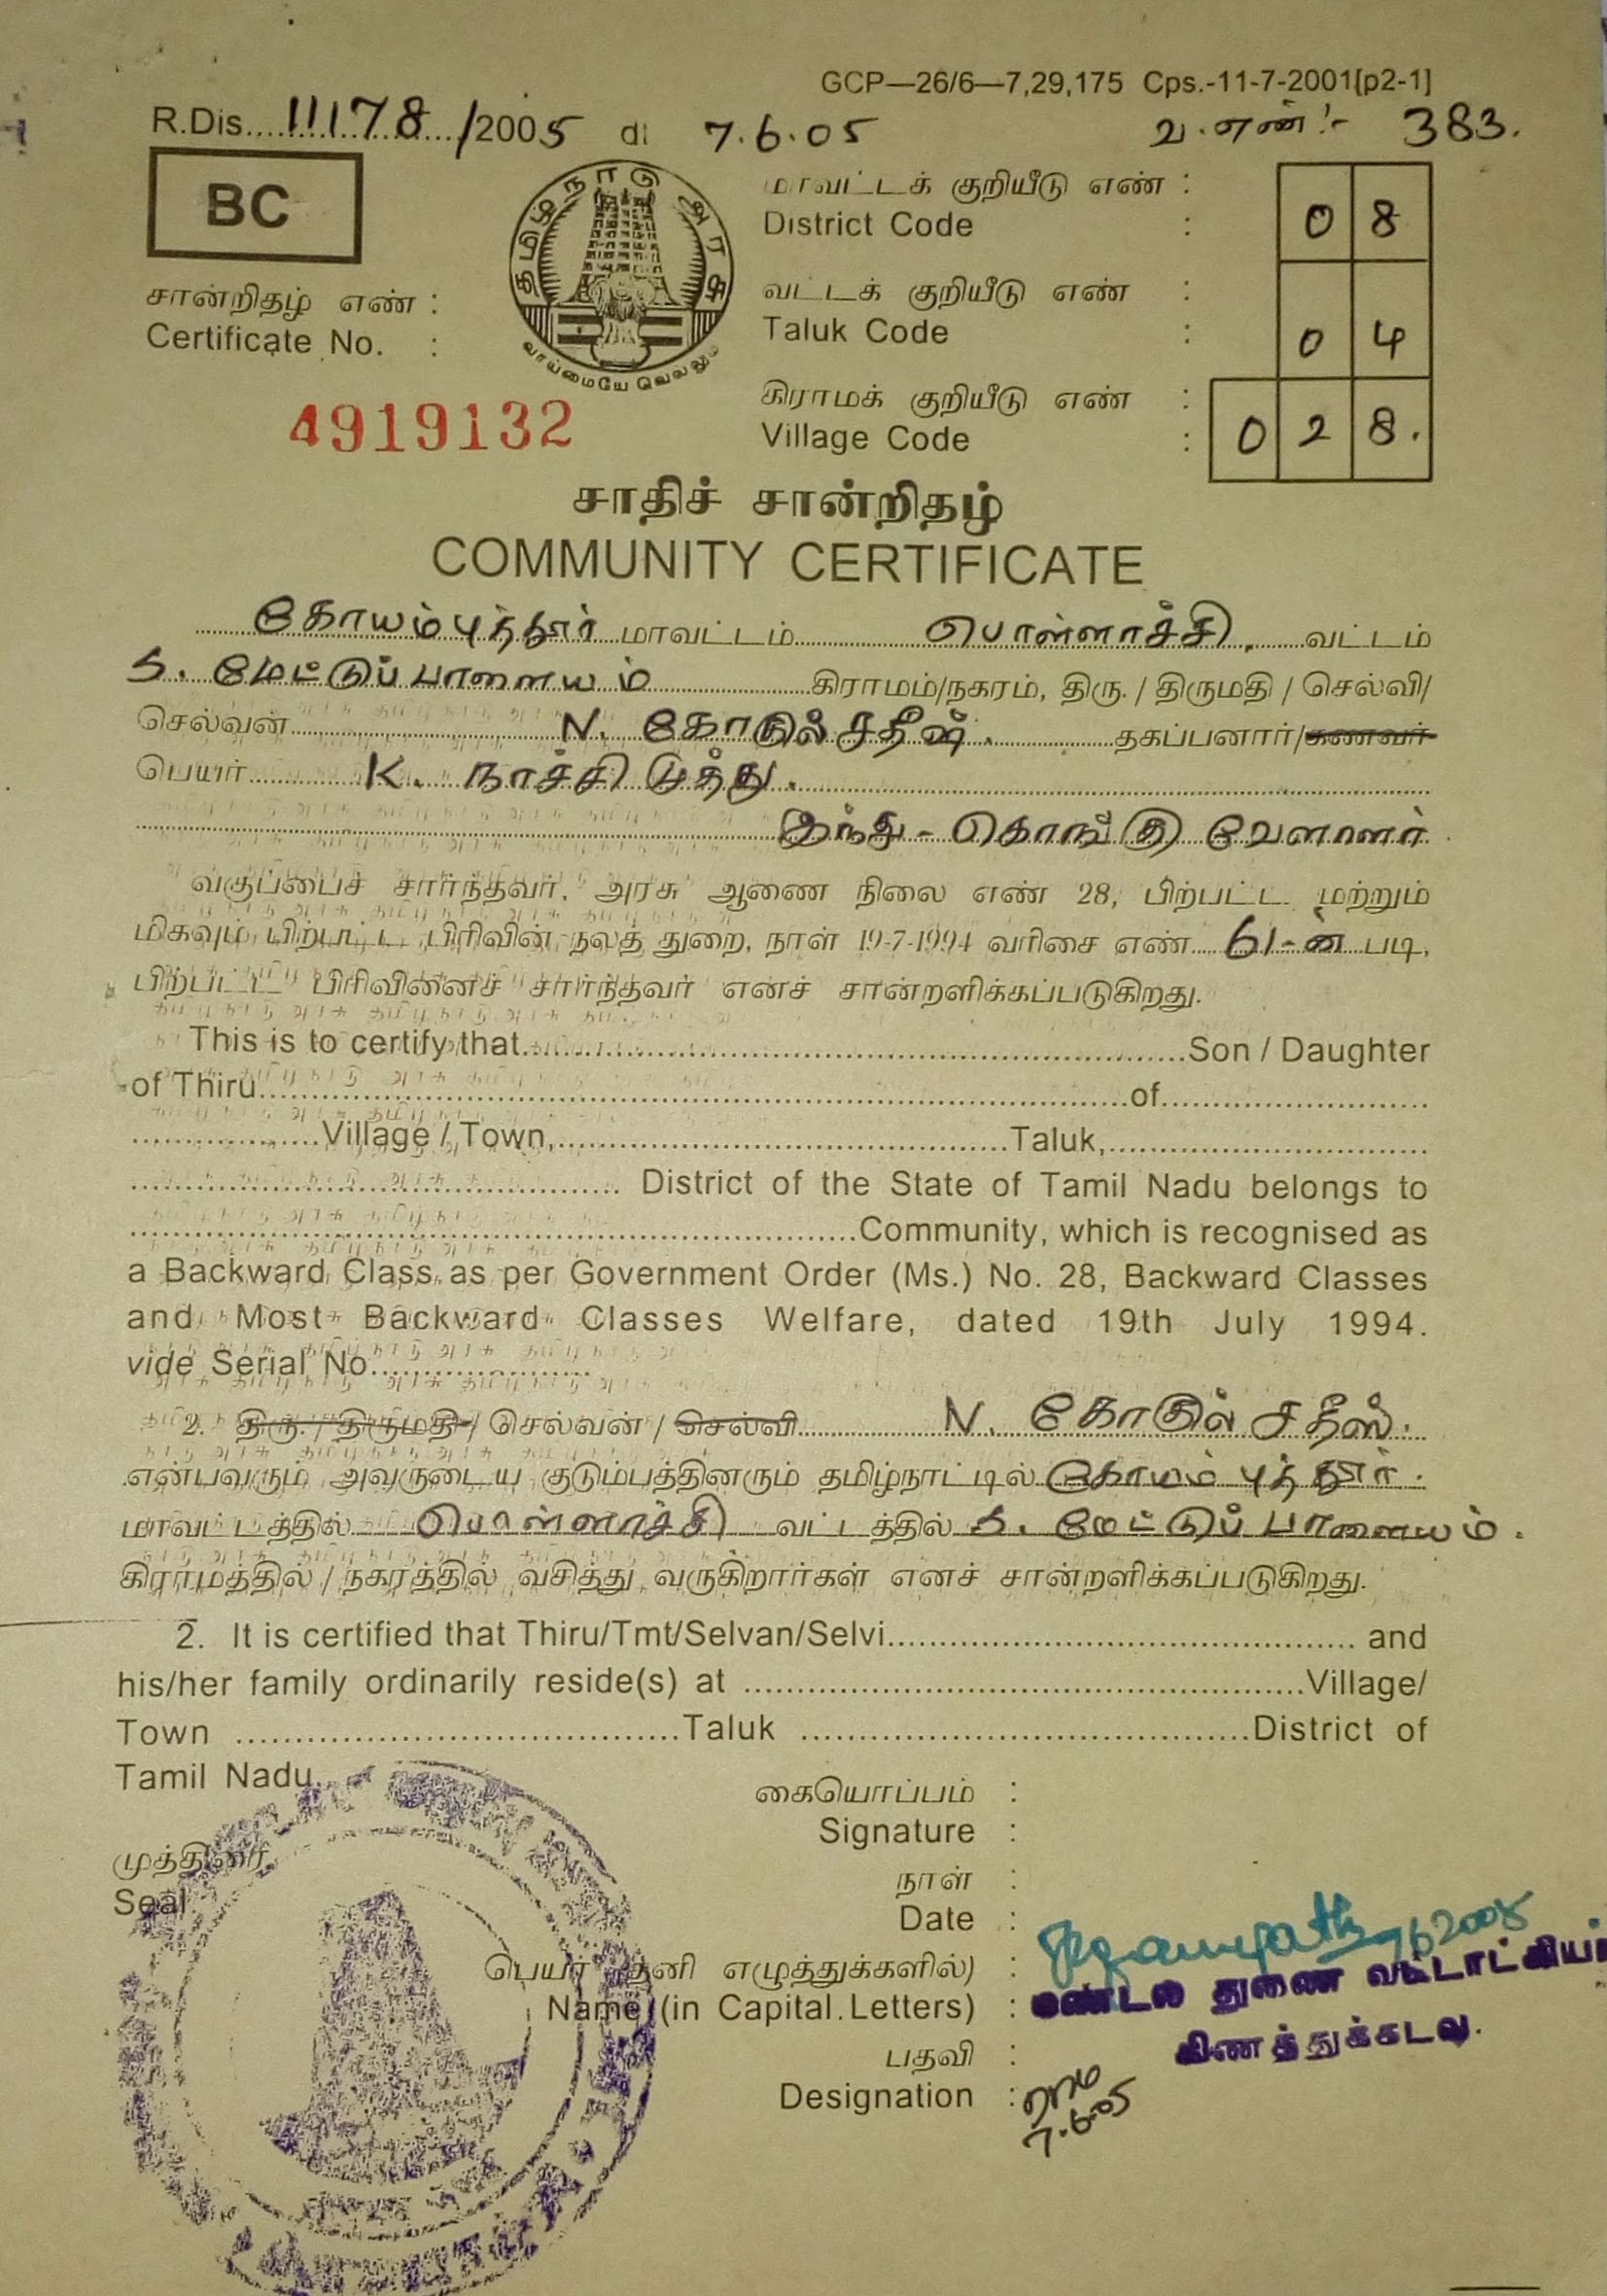 GCP—26/6—7,29,175 Cps.-11-7-2001[p2-1]
R.Dis....11178..../2005 dt 7.6.05 வ.எண்:- 383.
BC
தமிழ்நாடு அரசு
வாய்மையே வெல்லும்
மாவட்டக் குறியீடு எண் :
District Code : 0 8
சான்றிதழ் எண் :
Certificate No. :
வட்டக் குறியீடு எண் :
Taluk Code : 0 4
4919132
கிராமக் குறியீடு எண் :
Village Code : 0 2 8.
சாதிச் சான்றிதழ்
COMMUNITY CERTIFICATE
கோயம்புத்தூர் மாவட்டம் பொள்ளாச்சி. வட்டம்
S. மேட்டுப்பாளையம் கிராமம்/நகரம், திரு. / திருமதி / செல்வி/
செல்வன் N. கோகுல் சதீஷ். தகப்பனார்/கணவர்
பெயர் K. நாச்சிமுத்து.
இந்து - கொங்கு வேளாளர்
வகுப்பைச் சார்ந்தவர். அரசு ஆணை நிலை எண் 28, பிற்பட்ட மற்றும்
மிகவும் பிற்பட்ட பிரிவின் நலத் துறை, நாள் 19-7-1994 வரிசை எண் 61-ன் படி,
பிற்பட்ட பிரிவினைச் சார்ந்தவர் எனச் சான்றளிக்கப்படுகிறது.
This is to certify that Son / Daughter
of Thiru of
Village / Town, Taluk,
District of the State of Tamil Nadu belongs to
Community, which is recognised as
a Backward Class as per Government Order (Ms.) No. 28, Backward Classes
and Most Backward Classes Welfare, dated 19th July 1994.
vide Serial No.
2. திரு. / திருமதி / செல்வன் / செல்வி N. கோகுல் சதீஸ்.
என்பவரும் அவருடைய குடும்பத்தினரும் தமிழ்நாட்டில் கோயம்புத்தூர்.
மாவட்டத்தில் பொள்ளாச்சி வட்டத்தில் S. மேட்டுப்பாளையம்.
கிராமத்தில் / நகரத்தில் வசித்து வருகிறார்கள் எனச் சான்றளிக்கப்படுகிறது.
2. It is certified that Thiru/Tmt/Selvan/Selvi and
his/her family ordinarily reside(s) at Village/
Town Taluk District of
Tamil Nadu.
கையொப்பம் :
Signature :
முத்திரை
Seal
நாள் :
Date :
பெயர் (தனி எழுத்துக்களில்) :
Name (in Capital Letters) : மண்டல துணை வட்டாட்சியர்
கிணத்துக்கடவு.
பதவி :
Designation :
7.6.05